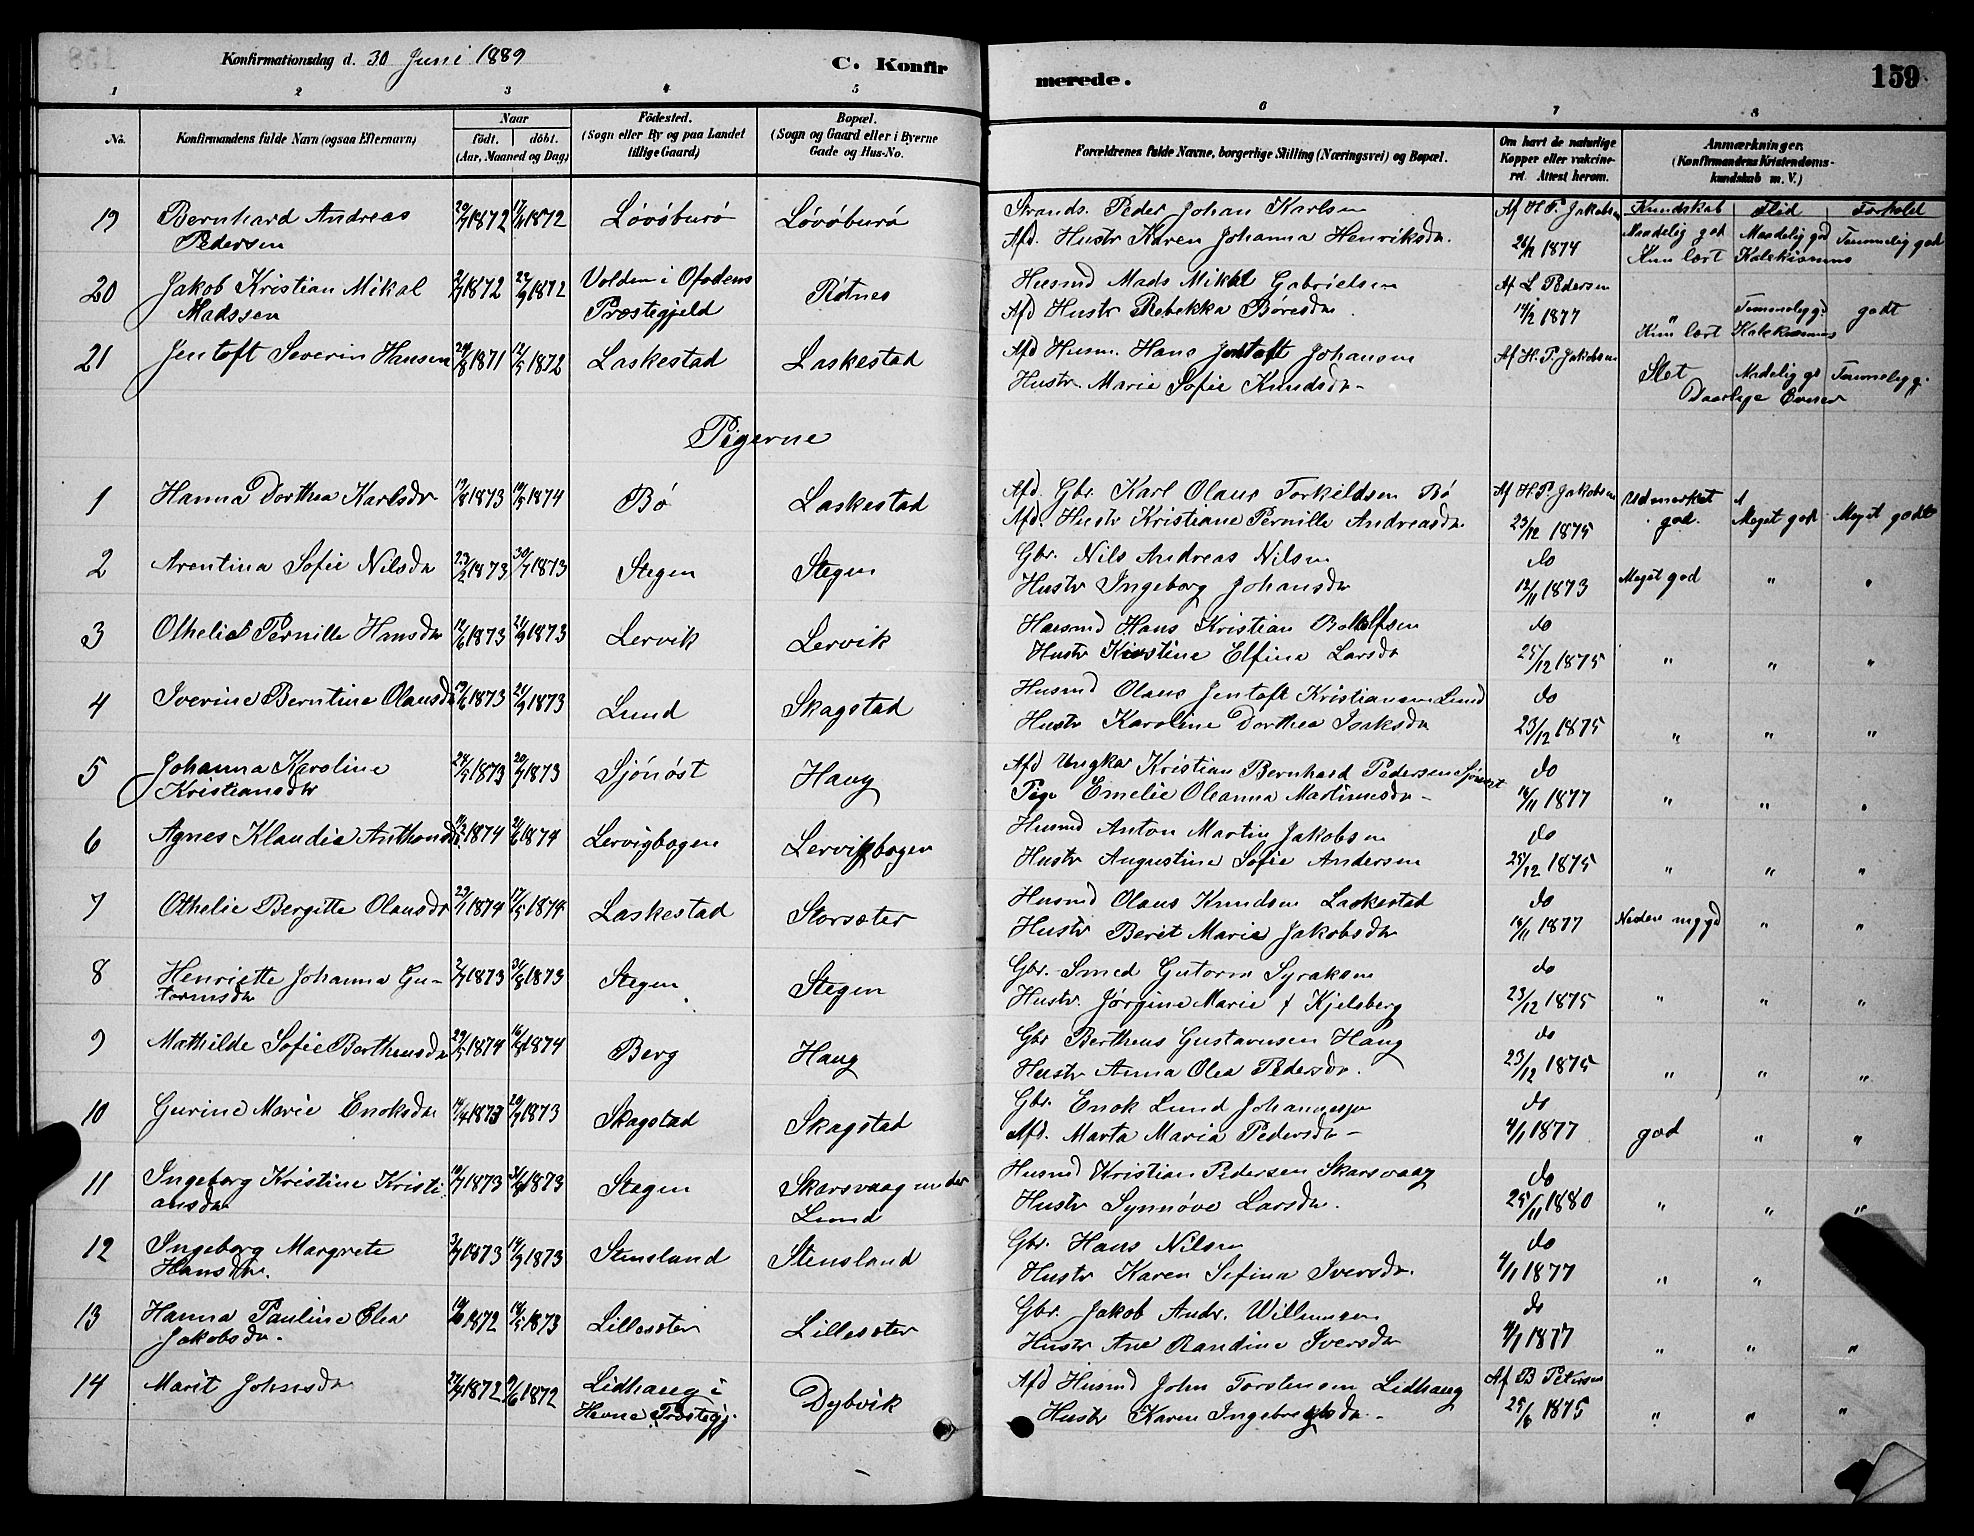 Konfirmationsdag d. 30 Juni 1889
C. Konfir
merede.
159
1
2
3
4
5
6
7
8
No.
Konfirmandens fulde Navn (ogsaa Efternavn)
Naar
født. døbt.
(Aar, Maaned og Dag)
Födested.
(Sogn eller By og paa Landet
tillige Gaard)
Bopæl.
(Sogn og Gaard eller i Byerne
Gade og Hus-No.
Forældrenes fulde Navne, borgerlige Stilling (Næringsvei) og Bopæl.
Om havt de naturlige
Kopper eller vakcine-
ret. Attest herom.
Anmærkninger.
(Konfirmandens Kristendoms-
kundskab m. V.)
Kundskab Flid Forhold
19 Bernhard Andreas 1872 1872 Løvøburø Løvøburø Strands. Peder Johan Karlsen Af H. P. Jakobsen
Pedersen Afd. Hustr Karen Johanna Henriksdr. 1874 Maadelig god Maadelig god Temmelig god
Kun lært Katekismus
20 Jakob Kristian Mikal 1872 1872 Volden i Ofodens Røtnes Husmd Mads Mikal Gabrielsen Af L Pedersen
Madssen Præstegjeld Afd Hustr Rebekka Børesdr. 14/2 1877 " Temmelig g. godt
Kun lært Katekismus
21 Jentoft Severin Hansen 1871 1872 Laskestad Laskestad Afd Husm. Hans Jentoft Johansen Af H. P. Jakobsen
Hustr Marie Sofie Knudsdr Slet Madelig gd Temmelig g.
Daarlige Evner
Pigerne
1 Hanna Dorthea Karlsdr 1873 1874 Bø Laskestad Afd. Gbr. Karl Olaus Torkildsen Bø Af H. P. Jakobsen
Afd. Hustr Kristiane Pernille Andreasdr. 23/12 1875 Udmerket god. Meget god Meget godt
2 Arentina Sofie Nilsdr 1873 30/7 1873 Stegen Stegen Gbr. Nils Andreas Nilsen do
Hustr Ingeborg Johansdr 12/11 1873 Meget god " "
3 Othelie Pernille Hansdr 1873 1873 Lervik Lervik Husmd Hans Kristian Rollefsen do
Hustr Kirstine Elfina Larsdr 25/12 1875 " " "
4 Iverine Berntine Olausdr 1873 1873 Lund Skagstad Husmd Olaus Jentoft Kristiansen Lund do
Hustr Karoline Dorthea Isaksdr 23/12 1875 " " "
5 Johanna Karoline 1873 1873 Sjønøst Haug Afd Ungkar Kristian Bernhard Pedersen Sjønøst do
Kristiansdr Pige Emelie Oleanna Martinusdr 1877 " " "
6 Agnes Klaudia Anthonsdr 1874 1874 Lervigbogen Lervigbogen Husmd Anton Martin Jakobsen do
Hustr Augustine Sofie Andersen 25/12 1875 " " "
7 Othelie Bergitte Olausdr 1874 17/5 1874 Laskestad Storsæter Husmd Olaus Knudsen Laskestad do
Hustr Berit Marie Jakobsdr 1877 Neden mg gd " "
8 Henriette Johanna Gu- 1873 31/8 1873 Stegen Stegen Gbr. Smed Gutorm Syraksen do
tormsdr Hustr. Jørgine Marie f Kjelsberg 23/12 1875 " " "
9 Mathilde Sofie Bertheusdr 1874 1874 Berg Haug Gbr Bertheus Gustavusen Haug do
Hustr Anna Olea Pedersdr. 23/12 1875 " " "
10 Gurine Marie Enoksdr 1873 1873 Skagstad Skagstad Gbr. Enok Lund Johannesen do
Afd. Marta Maria Pedersdr 4/1 1877 god " "
11 Ingeborg Kristine Kristi- 1873 31/8 1873 Stegen Skarsvaag under Husmd Kristian Pedersen Skarsvaag do
ansdr Lund Hustr Synnøve Larsdr. 25/11 1880 " " "
12 Ingeborg Margrete 1873 14/9 1873 Stensland Stensland Gbr. Hans Nilsen do
Hansdr. Hustr Karen Sefina Iversdr. 4/1 1877 " "
13 Hanna Pauline Olea 1872 1873 Lillesæter Lillesæter Gbr. Jakob Andr. Willumsen do
Jakobsdr. Hustr Ane Randine Iversdr 4/1 1877 " " "
14 Marit Johnsdr 1872 9/6 1872 Lidhaug i Dybvik Afd Husmd John Torstensen Lidhaug Af B Petersen
Hevne Præstegj. Hustr Karen Ingebregtsdr. 25/6 1875 " " "